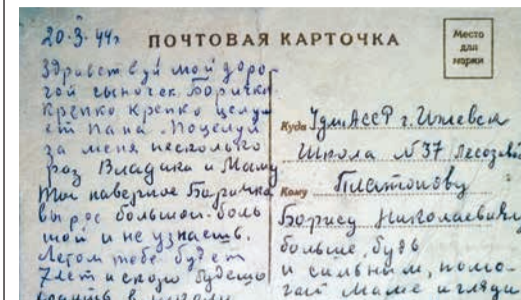 20·3·44г
ПОЧТОВАЯ КАРТОЧКА
Место
для
марки
Здравствуй мой доро-
гой сыночек Боричка
крепко крепко целу-
ет папа. Поцелуй
за меня несколько
раз Владика и Маму
Ты наверное Боричка
вырос большой-боль
шой и не узнаешь.
Летом тебе будет
7 лет и скоро будешь
ходить в школу
Куда Удм АССР г. Ижевск
Школа №37
Кому Платонову
Борису Николаевичу
больше, будь
и сильным, помо-
гай маме и гляди